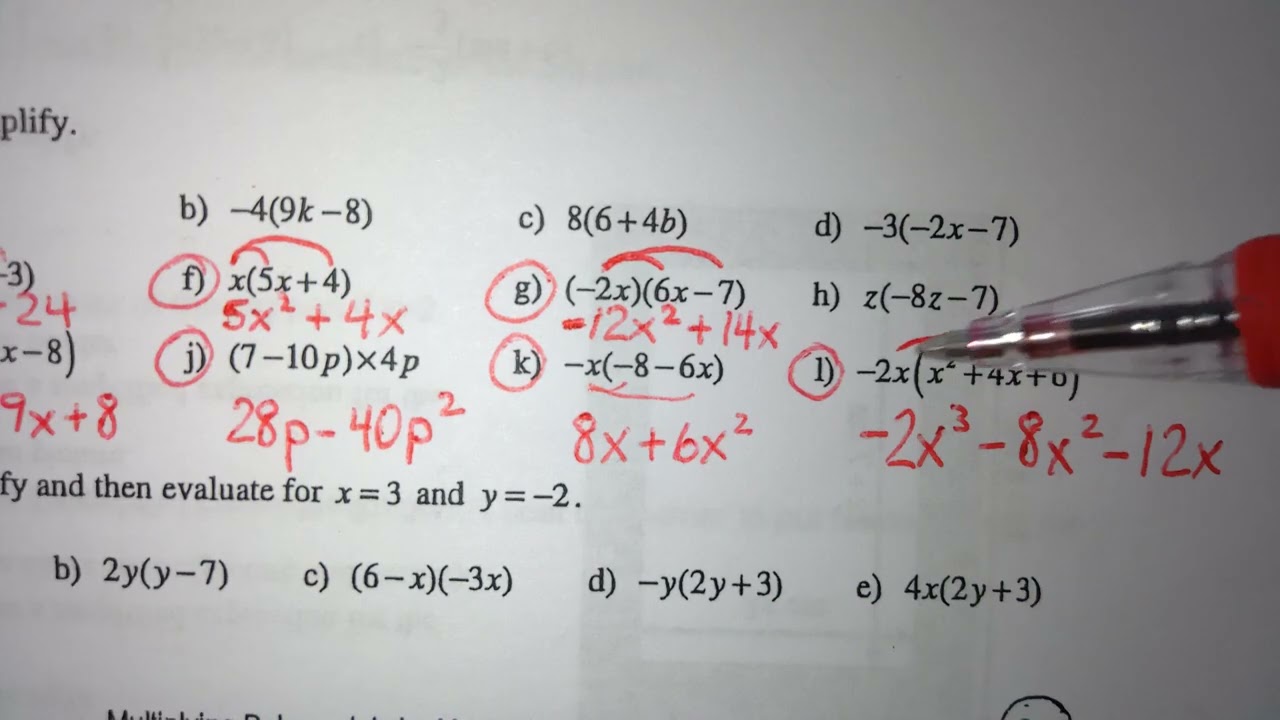 plify.
b) –4(9k – 8) c) 8(6 + 4b) d) –3(–2x – 7)
-3) f) x(5x + 4) g) (–2x)(6x – 7) h) z(–8z – 7)
- 24 5x² + 4x -12x² + 14x
x – 8) j) (7 – 10p) × 4p k) –x(–8 – 6x) l) –2x(x² + 4x + 6)
9x + 8 28p - 40p² 8x + 6x² -2x³ - 8x² - 12x
fy and then evaluate for x = 3 and y = –2.
b) 2y(y – 7) c) (6 – x)(–3x) d) –y(2y + 3) e) 4x(2y + 3)